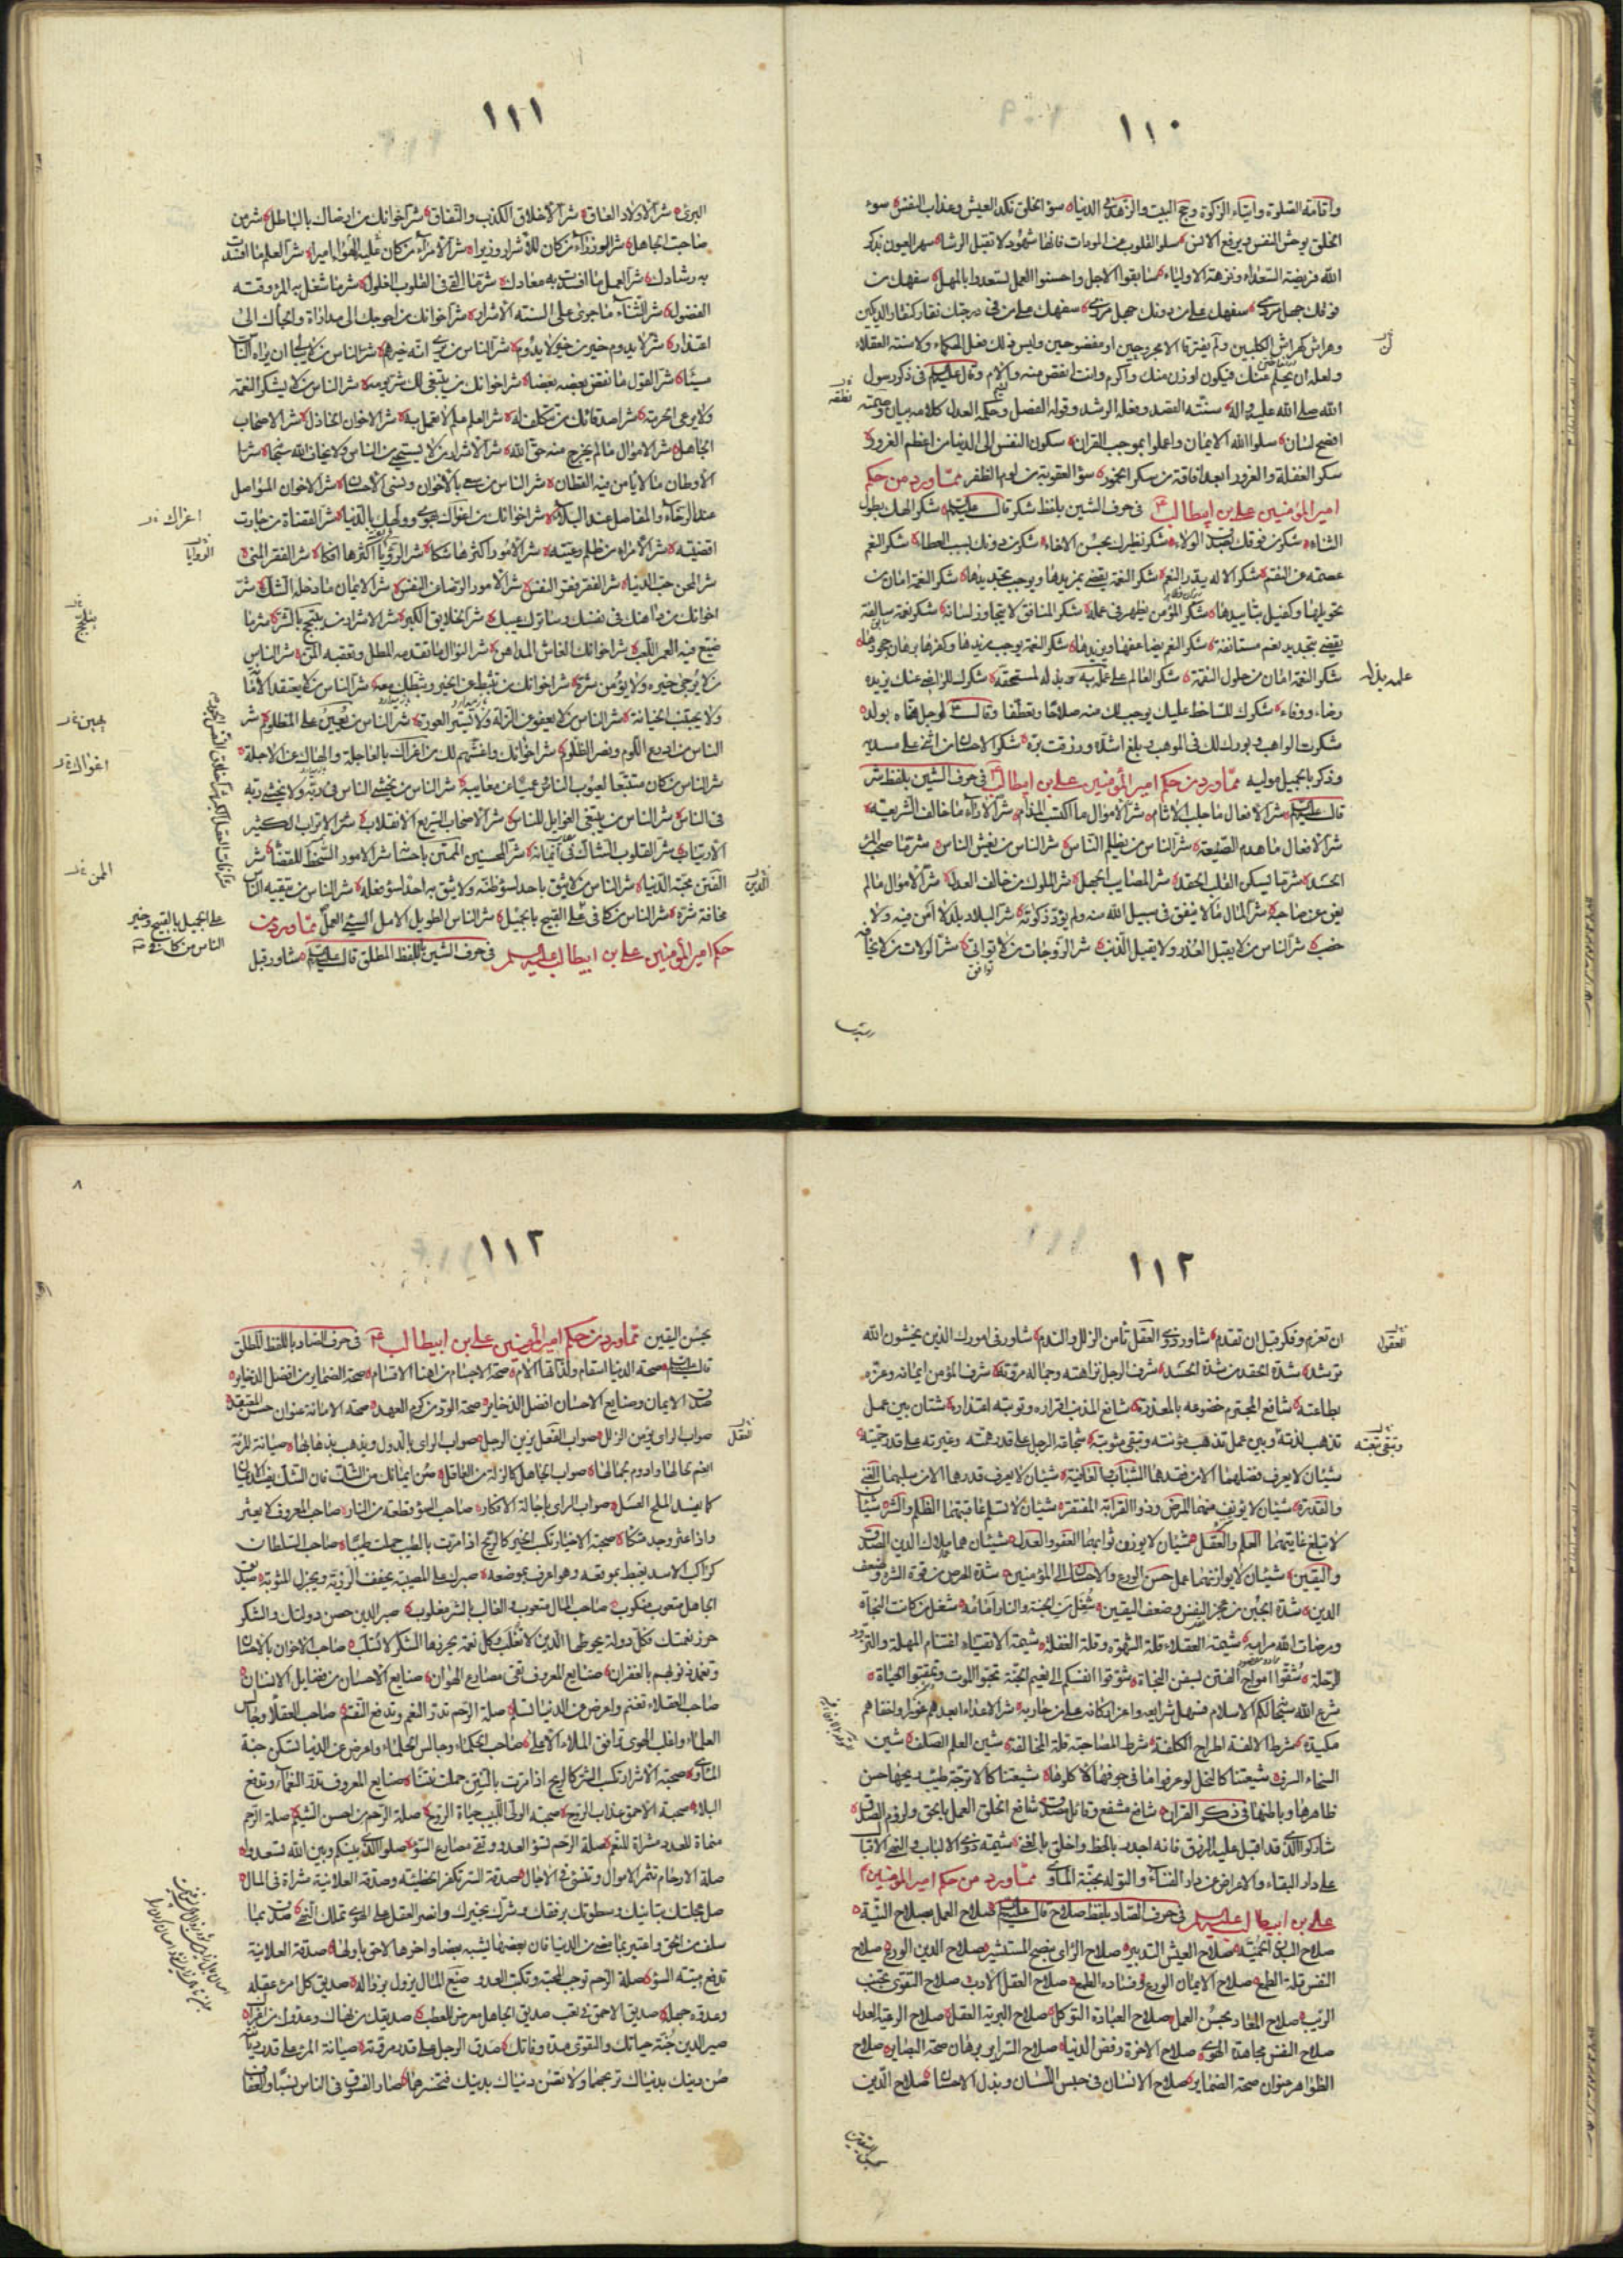 ١١٠
واقامة الصلوة وايتاء الزكوة وحج البيت والزهد في الدنيا سوء الخلق نكد العيش وعذاب النفس سوء
الخلق يوحش النفس ويرفع الانس سلوا القلوب عن المودات فانها شهود لا تقبل الرشا سهر العيون بذكر
الله فرصة السعداء ونزهة الاولياء سابقوا الاجل واحسنوا العمل تسعدوا بالمهل سفهك على من
فوقك جهل مردي سفهك على من دونك جهل مزري سفهك على من في درجتك نقار كنقار الديكين
وهراش كهراش الكلبين ولن يفترقا الا مجروحين او مفضوحين وليس ذلك فعل الحكماء ولا سنة العقلاء
ولعله ان يحلم عنك فيكون اوزن منك واكرم وانت انقص منه والام وقال عليه السلام في ذكر رسول
الله صلى الله عليه واله سنته القصد وفعله الرشد وقوله الفصل وحكمه العدل كلامه بيان وصمته
افصح لسان سلوا الله الايمان واعملوا بموجب القران سكون النفس الى الدنيا من اعظم الغرور
سكر الغفلة والغرور ابعد افاقة من سكر الخمور سوء العقوبة من لوم الظفر مما ورد من حكم
امير المؤمنين علي بن ابيطالب في حرف الشين بلفظ شكر قال عليه السلام شكر الهك بطول
الثناء شكر من فوقك بصدق الولاء شكر نظيرك بحسن الاخاء شكر من دونك بسبب العطاء شكر النعم
عصمة من النقم شكر الاله يدر النعم شكر النعمة يقضي بمزيدها ويوجب تجديدها شكر النعمة امان من
تحويلها وكفيل بتاييدها شكر المؤمن يظهر في عمله شكر المنافق لا يتجاوز لسانه شكر نعمة سالفة
يقضي بتجديد نعم مستانفة شكر النعم يضاعفها ويزيدها شكر النعمة يوجب مزيدها وكفرها برهان جحودها
شكر النعمة امان من حلول النقمة شكر العالم على علمه عمله به وبذله لمستحقه شكرك للراضي عنك يزيده
رضاء ووفاء شكرك للساخط عليك يوجب لك منه صلاحا وتعطفا وقال لرجل هناه بولد
شكرت الواهب وبورك لك في الموهوب وبلغ اشده ورزقت بره شكر الاحسان من اثنى على مسديه
وذكر بالجميل موليه مما ورد من حكم امير المؤمنين علي بن ابيطالب في حرف الشين بلفظ شر
قال عليه السلام شر الافعال ما جلب الاثام شر الاموال ما اكتسب المذام شر الاراء ما خالف الشريعة
شر الافعال ما هدم الصنيعة شر الناس من يظلم الناس شر الناس من يغش الناس شر ما صحب المرء
الحسد شر ما سكن القلب الحقد شر المصايب الجهل شر الملوك من خالف العدل شر الاموال ما لم
يغن عن صاحبه شر المال ما لا ينفق في سبيل الله منه ولم يؤد زكوته شر البلاد بلد لا امن فيه ولا
خصب شر الناس من لا يقبل العذر ولا يقيل الذنب شر الزوجات من لا تواتي شر الولاة من يخافه
توافق
علمه بذله
نطقه
١١١
البرئ شر الاولاد العاق شر الاخلاق الكذب والنفاق شر اخوانك من ارضاك بالباطل شر من
صاحبت الجاهل شر الوزراء من كان للاشرار وزيرا شر الامراء من كان عليه الهوا اميرا شر العلم ما افسدت
به رشادك شر العمل ما افسدت به معادك شر ما القي في القلوب الغلول شر ما شغل به المرء وقته
الفضول شر الثناء ما جرى على السنة الاشرار شر اخوانك من احوجك الى مداراة والجاك الى
اعتذار شر لا يدوم خير من خير لا يدوم شر الناس من يرى انه خيرهم شر الناس من لا يبالي ان يراه الناس
مسيئا شر القول ما نقض بعضه بعضا شر اخوانك من يبتغي لك شر يومه شر الناس من لا يشكر النعمة
ولا يرعى الحرمة شر اصدقائك من تتكلف له شر العلم علم لا يعمل به شر الاخوان الخاذل شر الاصحاب
الجاهل شر الاموال ما لم يخرج منه حق الله شر الاشرار من لا يستحيي من الناس ولا يخاف الله سبحانه شر
الاوطان ما لا يامن فيه القطان شر الناس من سعى بالاخوان ونسي الاحسان شر الاخوان المواصل
عند الرخاء والمفاصل عند البلاء شر اخوانك من اغراك بهوى وولهك بالدنيا شر القضاة من جارت
اقضيته شر الامراء من ظلم رعيته شر الامور اكثرها شكا شر الروايات اكثرها افكا شر الفقر المنى
شر المحن حب الدنيا شر الفقر فقر النفس شر الامور الرضا عن النفس شر الايمان ما دخله الشك شر
اخوانك من داهنك في نفسك وساترك عيبك شر الخلايق الكبر شر الاشرار من يتبجح بالشر شر ما
ضيع فيه العمر اللعب شر اخوانك الغاش المداهن شر النوال ما تقدمه المطل وتعقبه المن شر الناس
من لا يرجى خيره ولا يؤمن شره شر اخوانك من تثبط عن الخير وثبطك معه شر الناس من لا يعتقد الامانة
ولا يجتنب الخيانة شر الناس من لا يعفو عن الزلة ولا يستر العورة شر الناس من يعين على المظلوم شر
الناس من ادرع اللوم ونصر الظلوم شر اخوانك واغشهم لك من اغراك بالعاجلة والهاك عن الاجلة
شر الناس من كان متتبعا لعيوب الناس عميا عن معايبه شر الناس من يخشى الناس في ربه ولا يخشى ربه
في الناس شر الناس من يبتغي الغوايل للناس شر الاصحاب السريع الانقلاب شر الاتراب الكثير
الارتياب شر القلوب الشاك في ايمانه شر المحسنين الممتن باحسانه شر الامور السخط للقضاء شر
الفتن محبة الدنيا شر الناس من لا يثق باحد لسوء ظنه ولا يثق به احد لسوء فعله شر الناس من يتقيه الناس
مخافة شره شر الناس من كافى على القبيح بالجميل شر الناس الطويل الامل السيئ العمل مما ورد من
حكم امير المؤمنين علي بن ابيطالب عليه السلام في حرف الشين باللفظ المطلق قال عليه السلام شاور قبل
اغراك
الروايات
يعين
المن
على الجميل بالقبيح وخير
الناس من كافى
١١٢
ان تعزم وفكر قبل ان تقدم شاور ذوي العقل تامن الزلل والندم شاور في امورك الذين يخشون الله
ترشد شدة الحقد من شدة الحسد شرف الرجل نزاهته وجماله مروته شرف المؤمن ايمانه وعزه
بطاعته شافع المجرم خضوعه بالمعذرة شافع المذنب اقراره وتوبته اعتذاره شتان بين عمل
تذهب لذته وبين عمل تذهب مؤنته وتبقى مثوبته شجاعة الرجل على قدر همته وغيرته على قدر حميته
شيئان لا يعرف فضلهما الا من فقدهما الشباب والعافية شيئان لا يعرف قدرهما الا من سلبهما الغنى
والقدرة شيئان لا يؤنف منهما المرض وذو القرابة المفتقر شيئان لا تسلم عاقبتهما الظلم والشر شيئان
لا تبلغ غايتهما العلم والعقل شيئان لا يوزن ثوابهما العفو والعدل شيئان هما ملاك الدين الصدق
واليقين شيئان لا يوازنهما عمل حسن الورع والاحسان الى المؤمنين شدة الحرص من قوة الشره وضعف
الدين شدة الجبن من عجز النفس وضعف اليقين شغل من الجنة والنار امامه شغل من كانت النجاة
ومرضات الله مرامه شيمة العقلاء قلة الشهوة وقلة الغفلة شيمة الاتقياء اغتنام المهلة والتزود
للرحلة شقوا امواج الفتن بسفن النجاة شوقوا انفسكم الى نعيم الجنة تحبوا الموت وتمقتوا الحياة
شرع الله سبحانه لكم الاسلام فسهل شرايعه واعز اركانه على من حاربه شر الاعداء ابعدهم غورا واخفاهم
مكيدة شرط الالفة اطراح الكلفة شرط المصاحبة قلة المخالفة شين العلم الصلف شين
السخاء السرف شيعتنا كالنحل لو عرفوا ما في جوفها لاكلوها شيعتنا كالاترجة طيب ريحها حسن
ظاهرها وباطنها في ذكر القران شافع مشفع وقائل مصدق شافع الخلق العمل بالحق ولزوم الصدق
شاركوا الذي قد اقبل عليه الرزق فانه اجدر بالحظ واخلق بالغنى شيمة ذوي الالباب والنهى الاقبال
على دار البقاء والاعراض عن دار الفناء والتوله بجنة الماوى مما ورد من حكم امير المؤمنين
علي بن ابيطالب عليه السلام في حرف الصاد بلفظ صلاح قال عليه السلام صلاح العمل بصلاح النية
صلاح البدن الحمية صلاح العيش التدبير صلاح الراى بنصح المستشير صلاح الدين الورع صلاح
النفس قلة الطمع صلاح الايمان الورع وفساده الطمع صلاح العقل الادب صلاح التقوى تجنب
الريب صلاح المعاد بحسن العمل صلاح العبادة التوكل صلاح البرية العقل صلاح الرعية العدل
صلاح النفس مجاهدة الهوى صلاح الاخرة رفض الدنيا صلاح السراير برهان صحة البصاير صلاح
الظواهر عنوان صحة الضماير صلاح الانسان في حبس اللسان وبذل الاحسان صلاح الدين
العقول
١١٢
بحسن اليقين مما ورد من حكم امير المؤمنين علي بن ابيطالب في حرف الصاد باللفظ المطلق
قال عليه السلام صحة الدنيا اسقام ولذاتها الام صحة الاجسام من اهنا الاقسام صحة الضماير من افضل الذخاير
صدق الايمان وصنايع الاحسان افضل الذخاير صحة الود من كرم العهد صحة الامانة عنوان حسن المعتقد
صواب الراى يؤمن الزلل صواب الفعل يزين الرجل صواب الراى بالدول ويذهب بذهابها صيانة المرئة
انعم لحالها وادوم لجمالها صواب الجاهل كالزلة من العاقل صن ايمانك من الشك فان الشك يفسد الايمان
كما يفسد الملح العسل صواب الراى باجالة الافكار صاحب السوء قطعة من النار صاحب المعروف لا يعثر
واذا عثر وجد متكا صحبة الاخيار تكسب الخير كالريح اذا مرت بالطيب حملت طيبا صاحب السلطان
كراكب الاسد يغبط بموقعه وهو اعرف بموضعه صبرك على المصيبة يخفف الرزية ويجزل المثوبة صديق
الجاهل متعوب منكوب صاحب المال متعوب الغالب بالشر مغلوب صير الدين حصن دولتك والشكر
حرز نعمتك فكل دولة يحوطها الدين لا تغلب وكل نعمة يحرزها الشكر لا تسلب صاحب الاخوان بالاحسان
وتغمد ذنوبهم بالغفران صنايع المعروف تقي مصارع الهوان صنايع الاحسان من فضايل الانسان
صاحب العقلاء تغنم واعرض عن الدنيا تسلم صلة الرحم تدر النعم وتدفع النقم صاحب العقلاء وجالس
العلماء واغلب الهوى ترافق الملاء الاعلى صاحب الحكماء وجالس الحلماء واعرض عن الدنيا تسكن جنة
الماوى صحبة الاشرار تكسب الشر كالريح اذا مرت بالنتن حملت نتنا صنايع المعروف تدر النعماء وتدفع
البلاء صحبة الاحمق عذاب الروح صحبة الولي اللبيب حياة الروح صلة الرحم من احسن الشيم صلة الرحم
منماة للعدد مثراة للنعم صلة الرحم تسوء العدو وتقي مصارع السوء صلوا الذي بينكم وبين الله تسعدوا
صلة الارحام تثمر الاموال وتنسئ في الاجال صدقة السر تكفر الخطيئة وصدقة العلانية مثراة في المال
صل عجلتك بتانيك وسطوتك برفقك وشرك بخيرك وانصر العقل على الهوى تملك النهى صدق بما
سلف من الحق واعتبر بما مضى من الدنيا فان بعضها يشبه بعضا واخرها لاحق باولها صدقة العلانية
تدفع ميتة السوء صلة الرحم توجب المحبة وتكبت العدو صنيع المال يزول بزواله صديق كل امرء عقله
وعدوه جهله صديق الاحمق في تعب صديق الجاهل معرض للعطب صديقك من نهاك وعدوك من اغراك
صير الدين جنة حياتك والتقوى عدة وفاتك صدق الرجل على قدر مروته صيانة المرء على قدر ديانته
صن دينك بدنياك تربحهما ولا تصن دنياك بدينك فتخسرهما صار الفسوق في الناس نسبا والعفاف